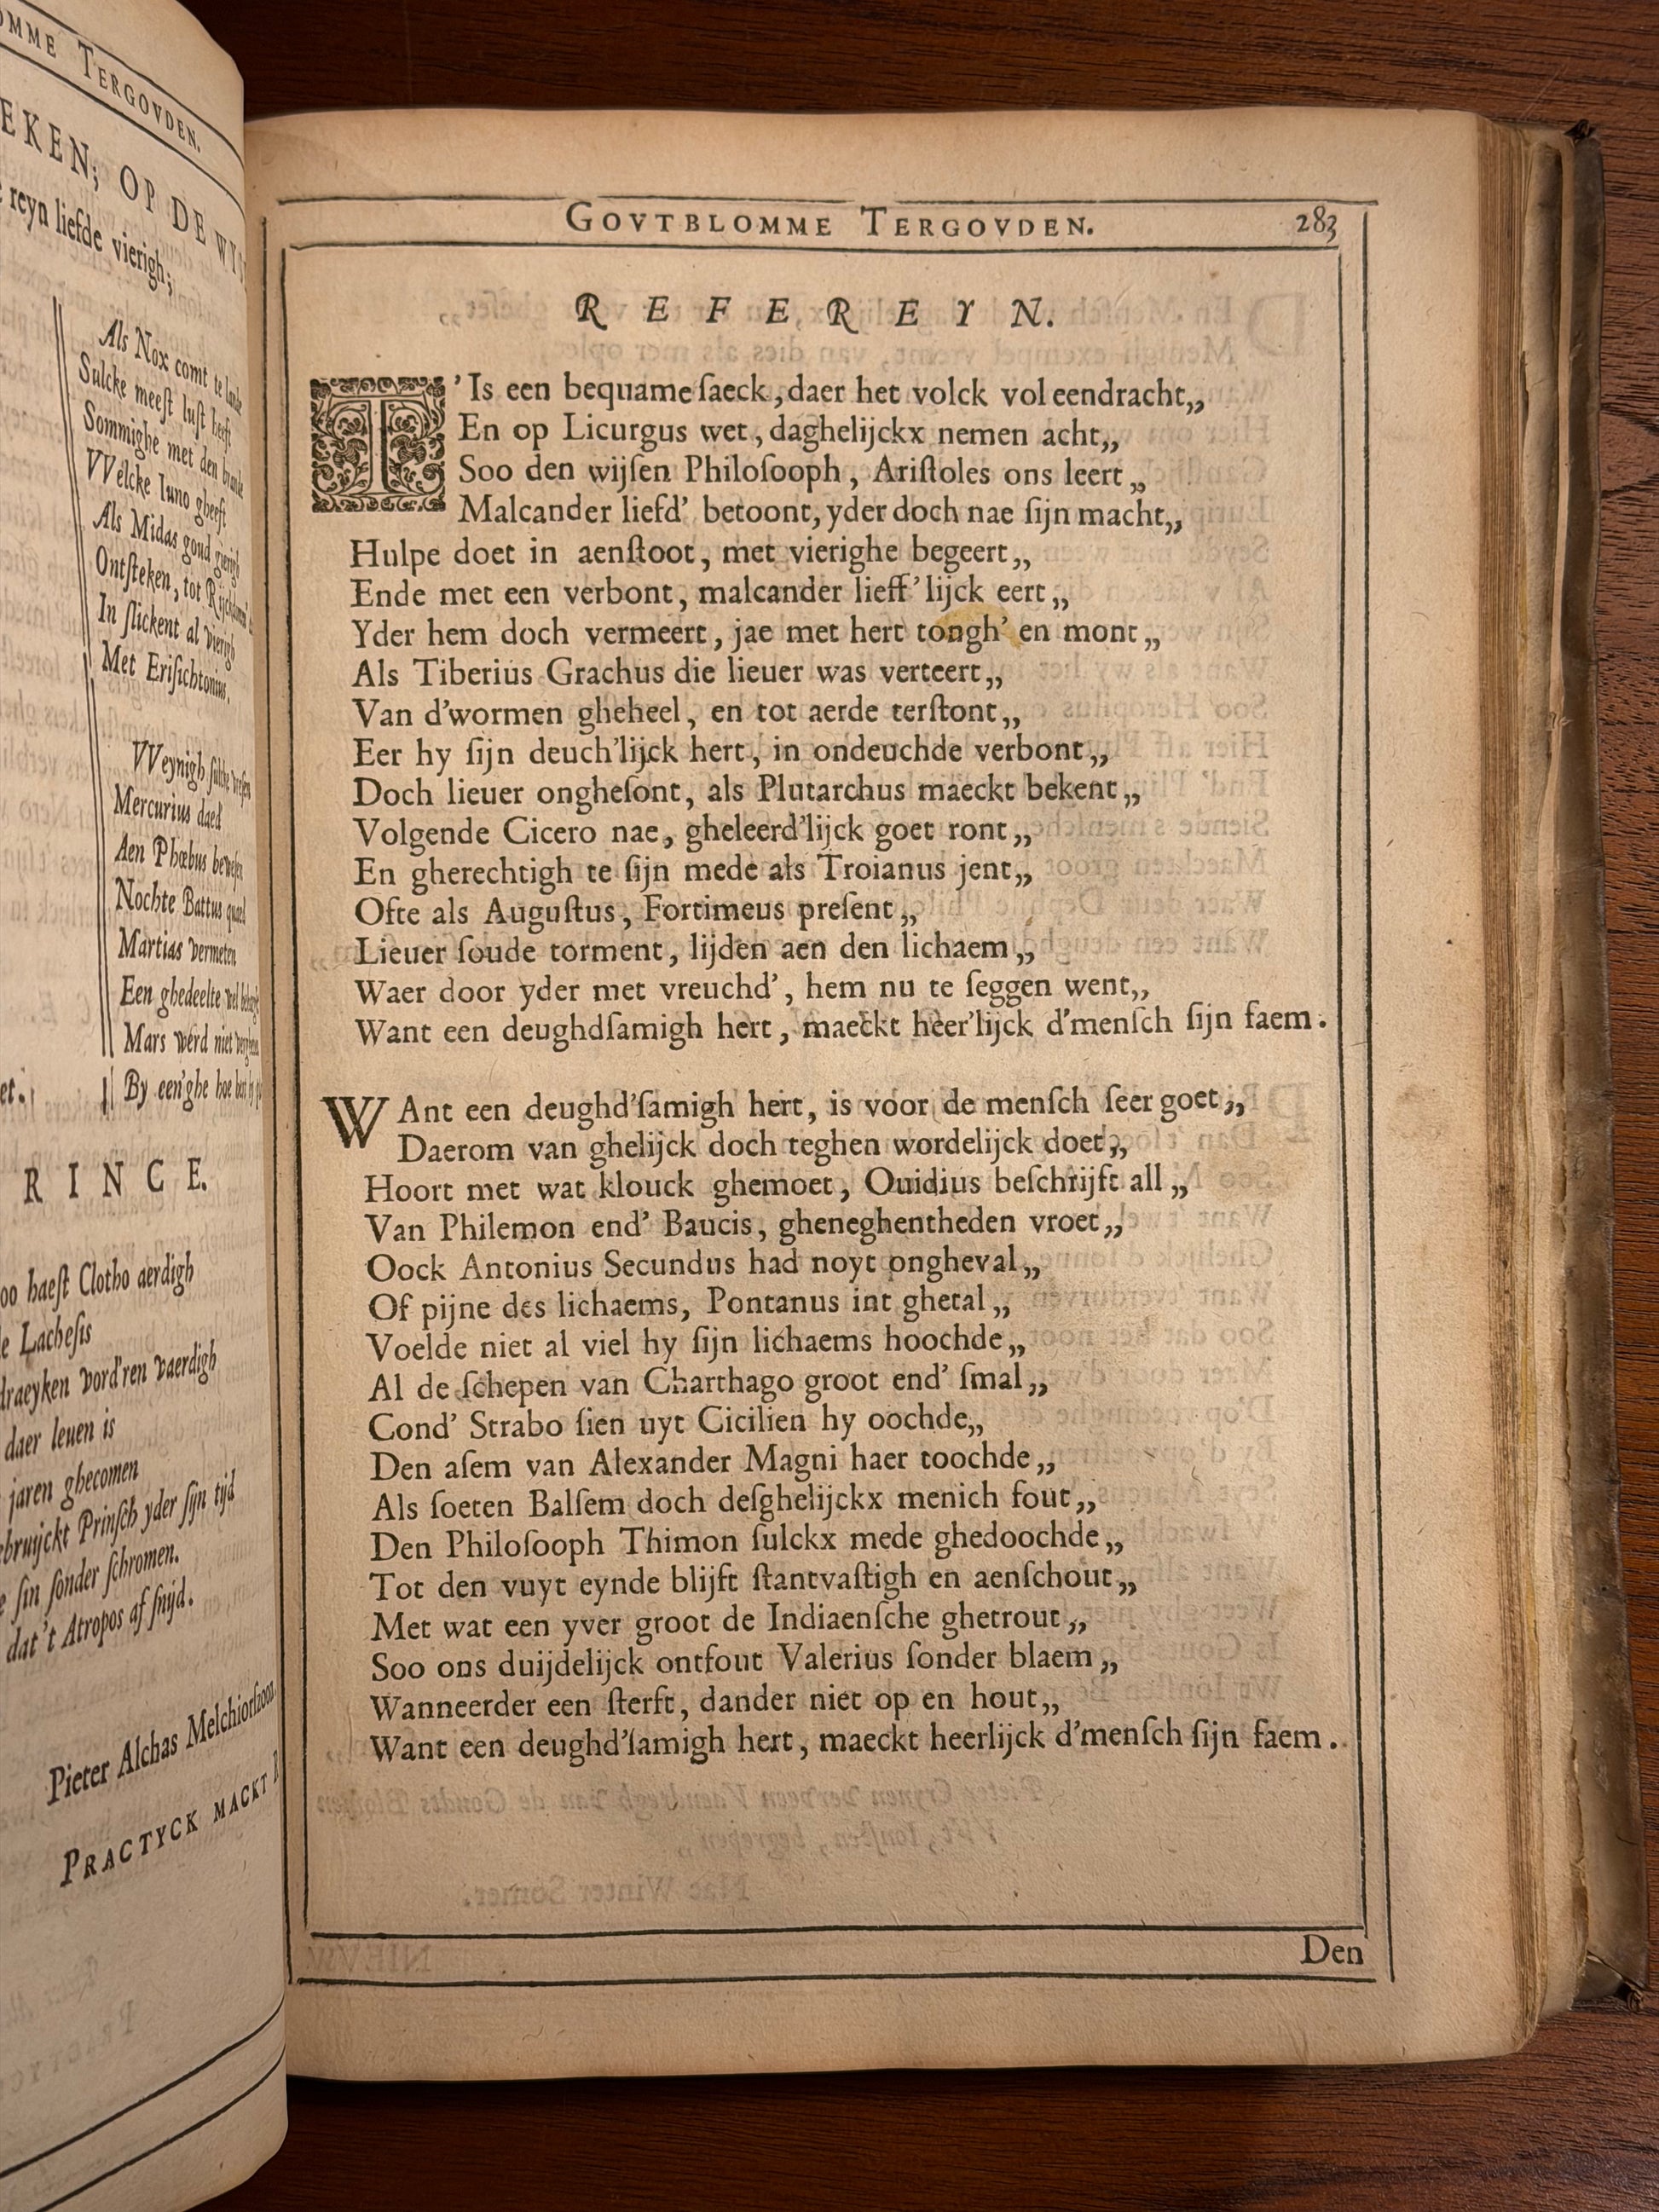 OMME TERGOVDEN.
EKEN; OP DE
reyn liefde vierigh;
Als Nox comt te lande
Sulcke meeſt luſt heeft
Sommighe met den brande
VVelcke Iuno gheeft
Als Midas goud gierigh
Ontſteken, tot
In ſlickent al vierigh
Met Eriſichtonius.
VVeynigh ſulcke
Mercurius daed
Aen Phœbus beweſen
Nochte Battus quaed
Martias vermeten
Een ghedeelte wel
Mars werd niet
By een'ghe hoe
et.
RINCE.
oo haeſt Clotho aerdigh
e Lacheſis
draeyken vord'ren vaerdigh
daer leuen is
jaren ghecomen
bruijckt Prinſch yder ſijn tijd
e ſin ſonder ſchromen.
dat 't Atropos af ſnijd.
Pieter Alchas Melchiorſzoon
PRACTYCK MACKT
GOVTBLOMME TERGOVDEN. 283
REFEREYN.
T'Is een bequame ſaeck, daer het volck vol eendracht,,
En op Licurgus wet, daghelijckx nemen acht,,
Soo den wijſen Philoſooph, Ariſtoles ons leert,,
Malcander liefd' betoont, yder doch nae ſijn macht,,
Hulpe doet in aenſtoot, met vierighe begeert,,
Ende met een verbont, malcander lieff'lijck eert,,
Yder hem doch vermeert, jae met hert tongh' en mont,,
Als Tiberius Grachus die lieuer was verteert,,
Van d'wormen gheheel, en tot aerde terſtont,,
Eer hy ſijn deuch'lijck hert, in ondeuchde verbont,,
Doch lieuer ongheſont, als Plutarchus maeckt bekent,,
Volgende Cicero nae, gheleerd'lijck goet ront,,
En gherechtigh te ſijn mede als Troianus jent,,
Ofte als Auguſtus, Fortimeus preſent,,
Lieuer ſoude torment, lijden aen den lichaem,,
Waer door yder met vreuchd', hem nu te ſeggen went,,
Want een deughdſamigh hert, maeckt heer'lijck d'menſch ſijn faem.
WAnt een deughd'ſamigh hert, is voor de menſch ſeer goet,,
Daerom van ghelijck doch teghen wordelijck doet,,
Hoort met wat klouck ghemoet, Ouidius beſchrijft all,,
Van Philemon end' Baucis, gheneghentheden vroet,,
Oock Antonius Secundus had noyt ongheval,,
Of pijne des lichaems, Pontanus int ghetal,,
Voelde niet al viel hy ſijn lichaems hoochde,,
Al de ſchepen van Charthago groot end' ſmal,,
Cond' Strabo ſien uyt Cicilien hy oochde,,
Den aſem van Alexander Magni haer toochde,,
Als ſoeten Balſem doch deſghelijckx menich fout,,
Den Philoſooph Thimon ſulckx mede ghedoochde,,
Tot den vuyt eynde blijft ſtantvaſtigh en aenſchout,,
Met wat een yver groot de Indiaenſche ghetrout,,
Soo ons duijdelijck ontfout Valerius ſonder blaem,,
Wanneerder een ſterft, dander niet op en hout,,
Want een deughd'ſamigh hert, maeckt heerlijck d'menſch ſijn faem.
Den